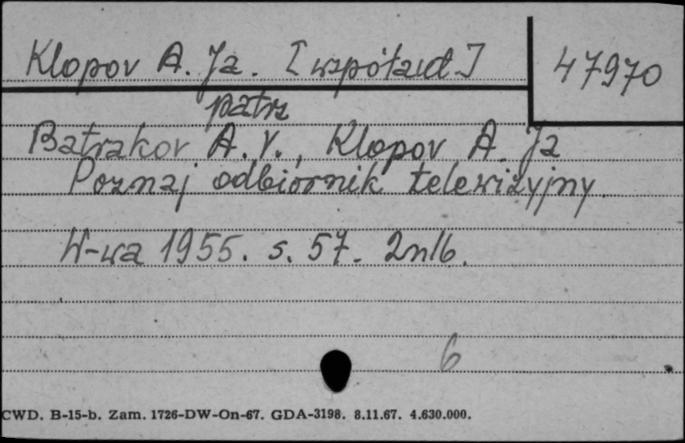 Klopov A. Ja. [współaut.]
47970
patrz
Batrakov A. V., Klopov A. Ja
Poznaj odbiornik telewizyjny
W-wa 1955. s. 57. 2nlb.
6
CWD. B-15-b. Zam. 1726-DW-On-67. GDA-3198. 8.11.67. 4.630.000.